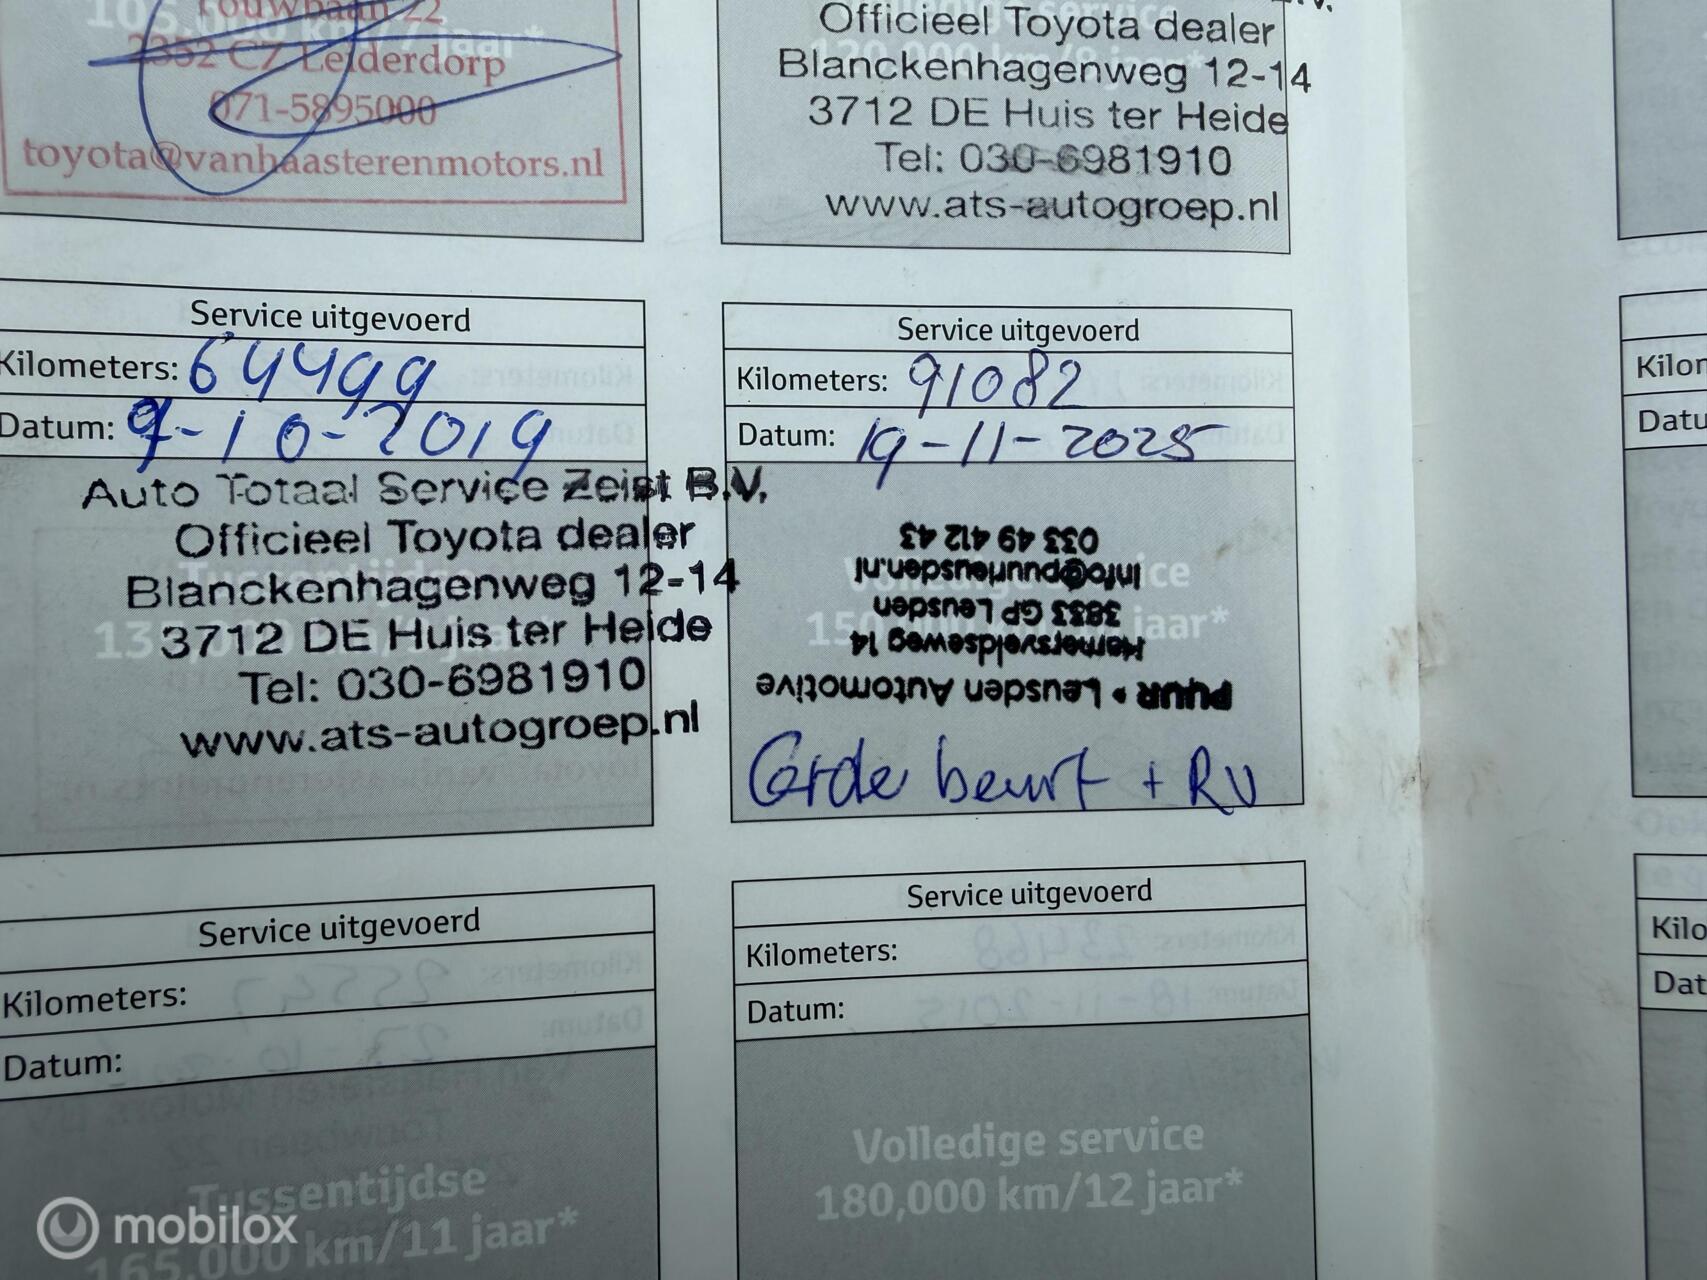 105,000 km/7 jaar*
Touwbaan 22
2352 CZ Leiderdorp
071-5895000
toyota@vanhaasterenmotors.nl
120,000 km/8 jaar*
Officieel Toyota dealer
Blanckenhagenweg 12-14
3712 DE Huis ter Heide
Tel: 030-6981910
www.ats-autogroep.nl
Service uitgevoerd
Kilometers: 64499
Datum: 9-10-2019
Auto Totaal Service Zeist B.V.
Officieel Toyota dealer
Blanckenhagenweg 12-14
3712 DE Huis ter Heide
Tel: 030-6981910
www.ats-autogroep.nl
Service uitgevoerd
Kilometers: 91082
Datum: 19-11-2025
Volledige service
150,000 km/10 jaar*
PUUR • Leusden Automotive
Hamersveldseweg 14
3833 GP Leusden
info@puurleusden.nl
033 49 412 43
Grote beurt + RV
Service uitgevoerd
Kilometers:
Datum:
Tussentijdse
165,000 km/11 jaar*
Service uitgevoerd
Kilometers:
Datum:
Volledige service
180,000 km/12 jaar*
mobilox